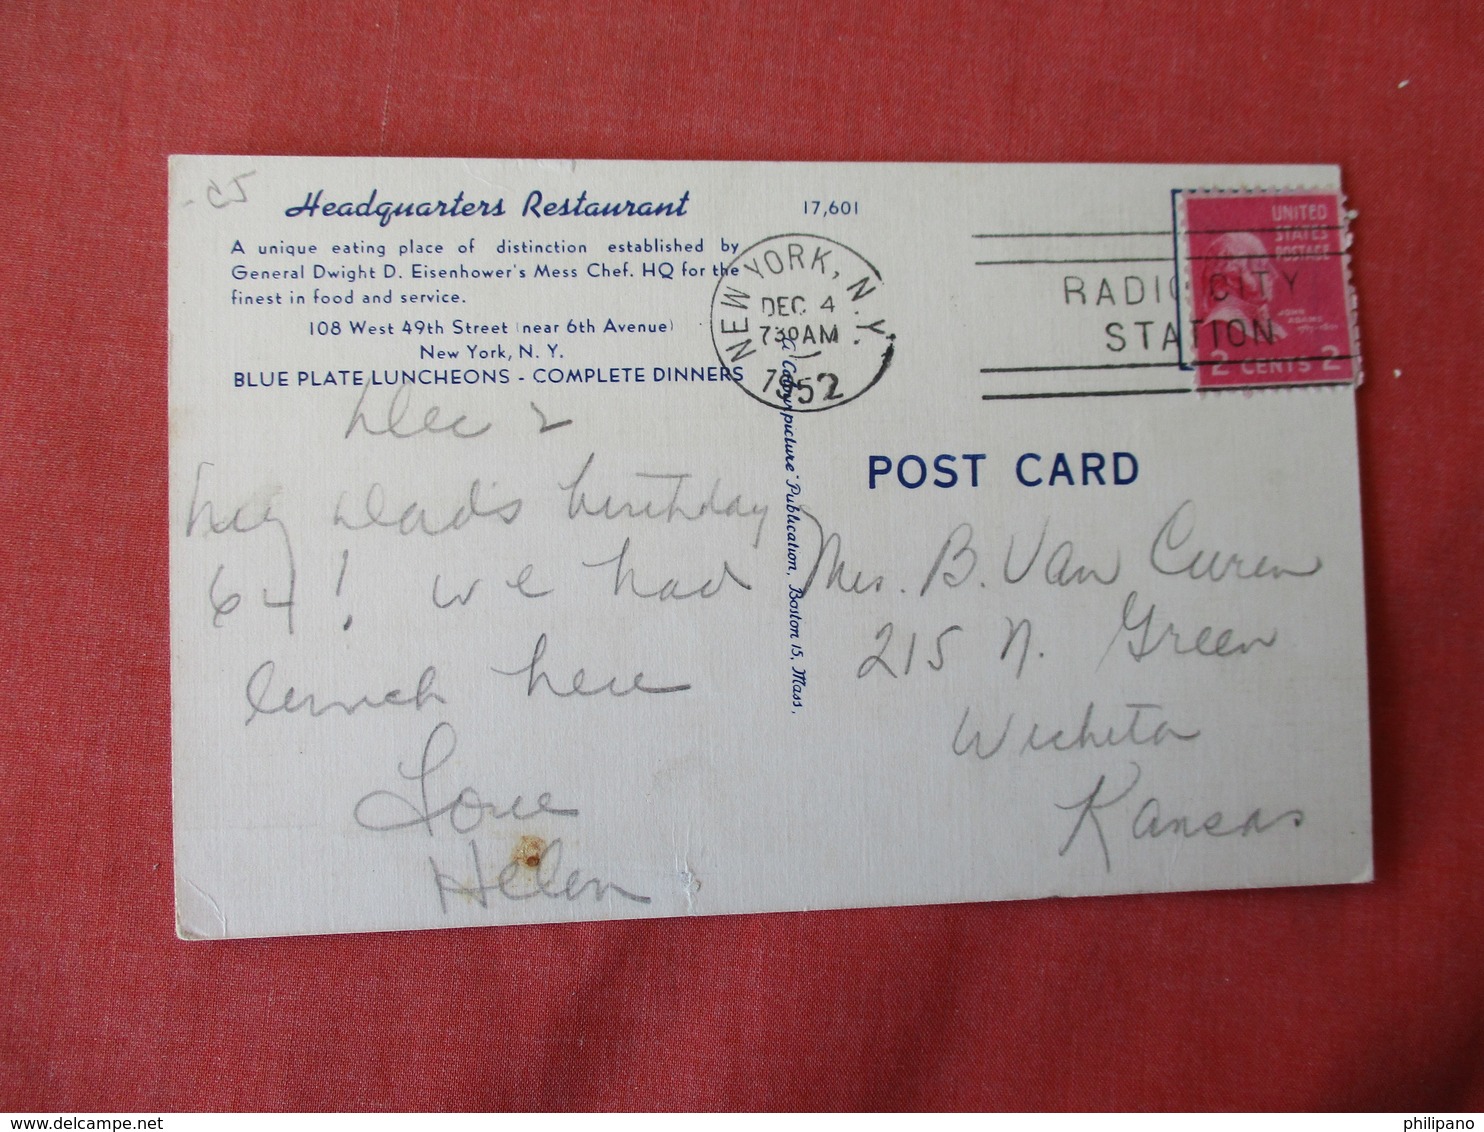 Headquarters Restaurant
17,601
A unique eating place of distinction established by
General Dwight D. Eisenhower's Mess Chef. HQ for the
finest in food and service.
108 West 49th Street (near 6th Avenue)
New York, N. Y.
BLUE PLATE LUNCHEONS - COMPLETE DINNERS
NEW YORK, N.Y.
DEC 4
7 30 AM
1952
RADIO CITY
STATION
UNITED
STATES
POSTAGE
JOHN
ADAMS
2 CENTS 2
Dec 2
hey dad's birthday
64! we had
lunch here
Love
Helen
Colourpicture" Publication, Boston 15, Mass.
POST CARD
Mrs. B. Van Curen
215 N. Green
Wichita
Kansas
philipano